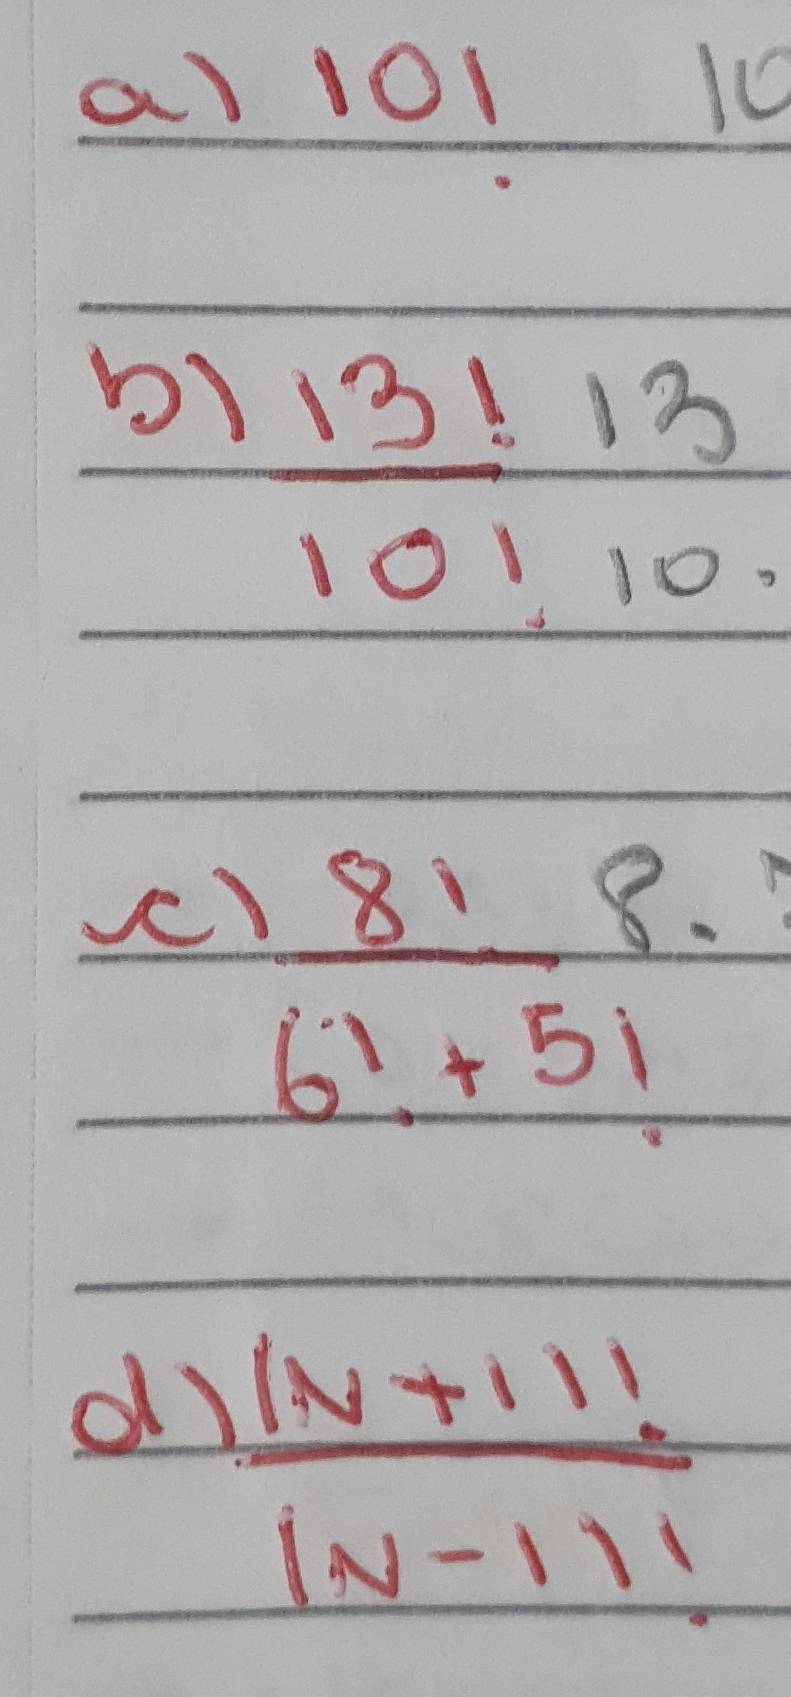 a) 10! 10
b) 13! 13
10! 10.
c) 8! 8.
6! + 5!
d) (N+1)!
(N-1)!